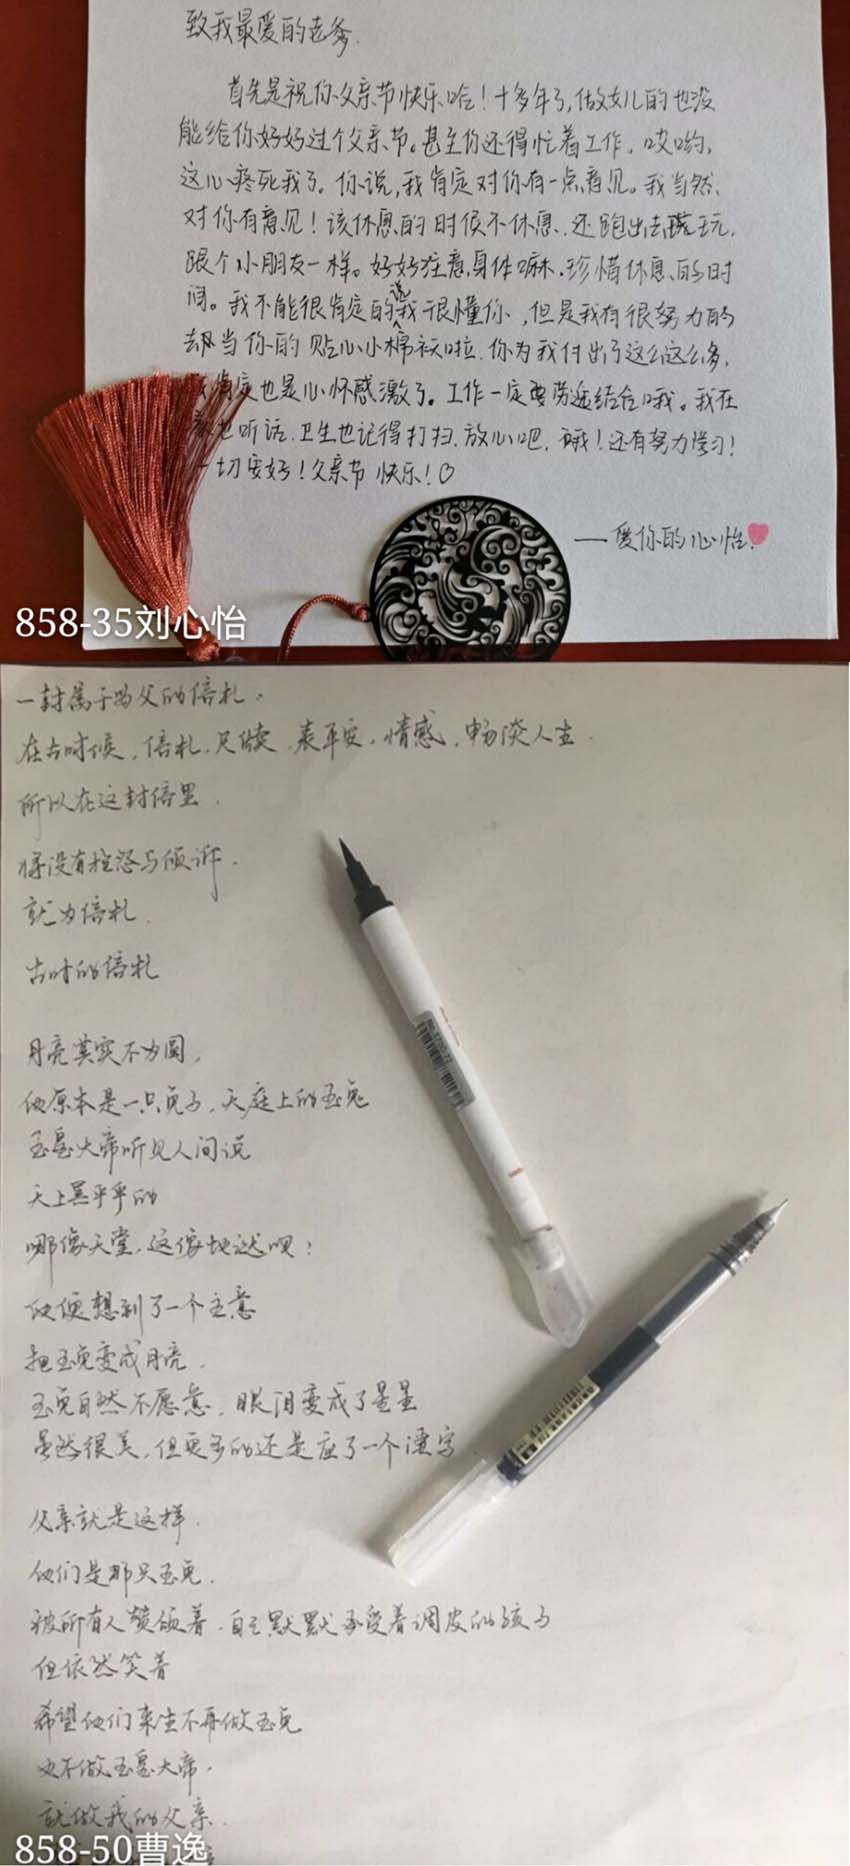 致我最爱的老爹.
首先是祝你父亲节快乐哈！十多年了,做女儿的也没
能给你好好过个父亲节。甚至你还得忙着工作。哎哟,
这心疼死我了。你说,我肯定对你有一点意见。我当然、
对你有意见！该休息的时侯不休息.还跑出去玩.
跟个小朋友一样。好好注意身体嘛.珍惜休息的时
间。我不能很肯定的说我很懂你,但是我有很努力的
去当你的贴心小棉袄啦.你为我付出了这么这么多.
肯定也是心怀感激了。工作一定要劳逸结合哦。我在
也听话.卫生也记得打扫.放心吧.哦！还有努力学习！
一切安好！父亲节快乐！♡
—爱你的心怡.
858-35刘心怡
一封属于为父的信札.
在古时候,信札.尺牍.表平安.情感.畅谈人生.
所以在这封信里.
将没有抱怨与倾诉.
就为信札.
古时的信札
月亮其实不为圆,
他原本是一只兔子,天庭上的玉兔
玉皇大帝听见人间说
天上黑乎乎的
哪像天堂,这像地狱呗!
他便想到了一个主意
把玉兔变成月亮.
玉兔自然不愿意,眼泪变成了星星
虽然很美,但更多的还是应了一个凄字.
父亲就是这样.
他们是那只玉兔.
被所有人赞颂着.自己默默承受着调皮的孩子
但依然笑着
希望他们来生不再做玉兔
也不做玉皇大帝.
就做我的父亲.
858-50曹逸